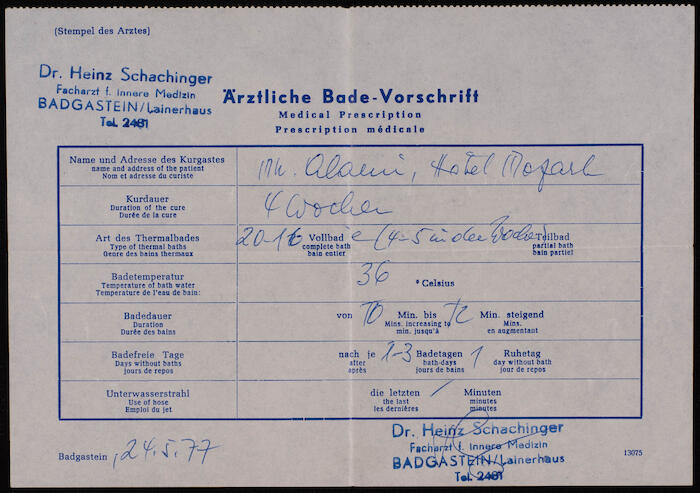 (Stempel des Arztes)
Dr. Heinz Schachinger
Facharzt f. Innere Medizin
BADGASTEIN/Lainerhaus
Tel. 2481
Ärztliche Bade-Vorschrift
Medical Prescription
Prescription médicale
Name und Adresse des Kurgastes
name and address of the patient
Nom et adresse du curiste
Hotel Mozart
Kurdauer
Duration of the cure
Durée de la cure
4 Wochen
Art des Thermalbades
Type of thermal baths
Genre des bains thermaux
Vollbad (4-5 in der Woche) Teilbad
complete bath partial bath
bain entier bain partiel
Badetemperatur
Temperature of bath water
Temperature de l'eau de bain:
36 ° Celsius
Badedauer
Duration
Durée des bains
von 10 Min. bis 12 Min. steigend
Mins. increasing to Mins.
min. jusqu'à en augmentant
Badefreie Tage
Days without baths
jours de repos
nach je 2-3 Badetagen 1 Ruhetag
after bath-days day without bath
après jours de bains jour de repos
Unterwasserstrahl
Use of hose
Emploi du jet
die letzten / Minuten
the last minutes
les dernières minutes
Dr. Heinz Schachinger
Facharzt f. Innere Medizin
BADGASTEIN/Lainerhaus
Tel. 2481
Badgastein, 24.5.77
13075